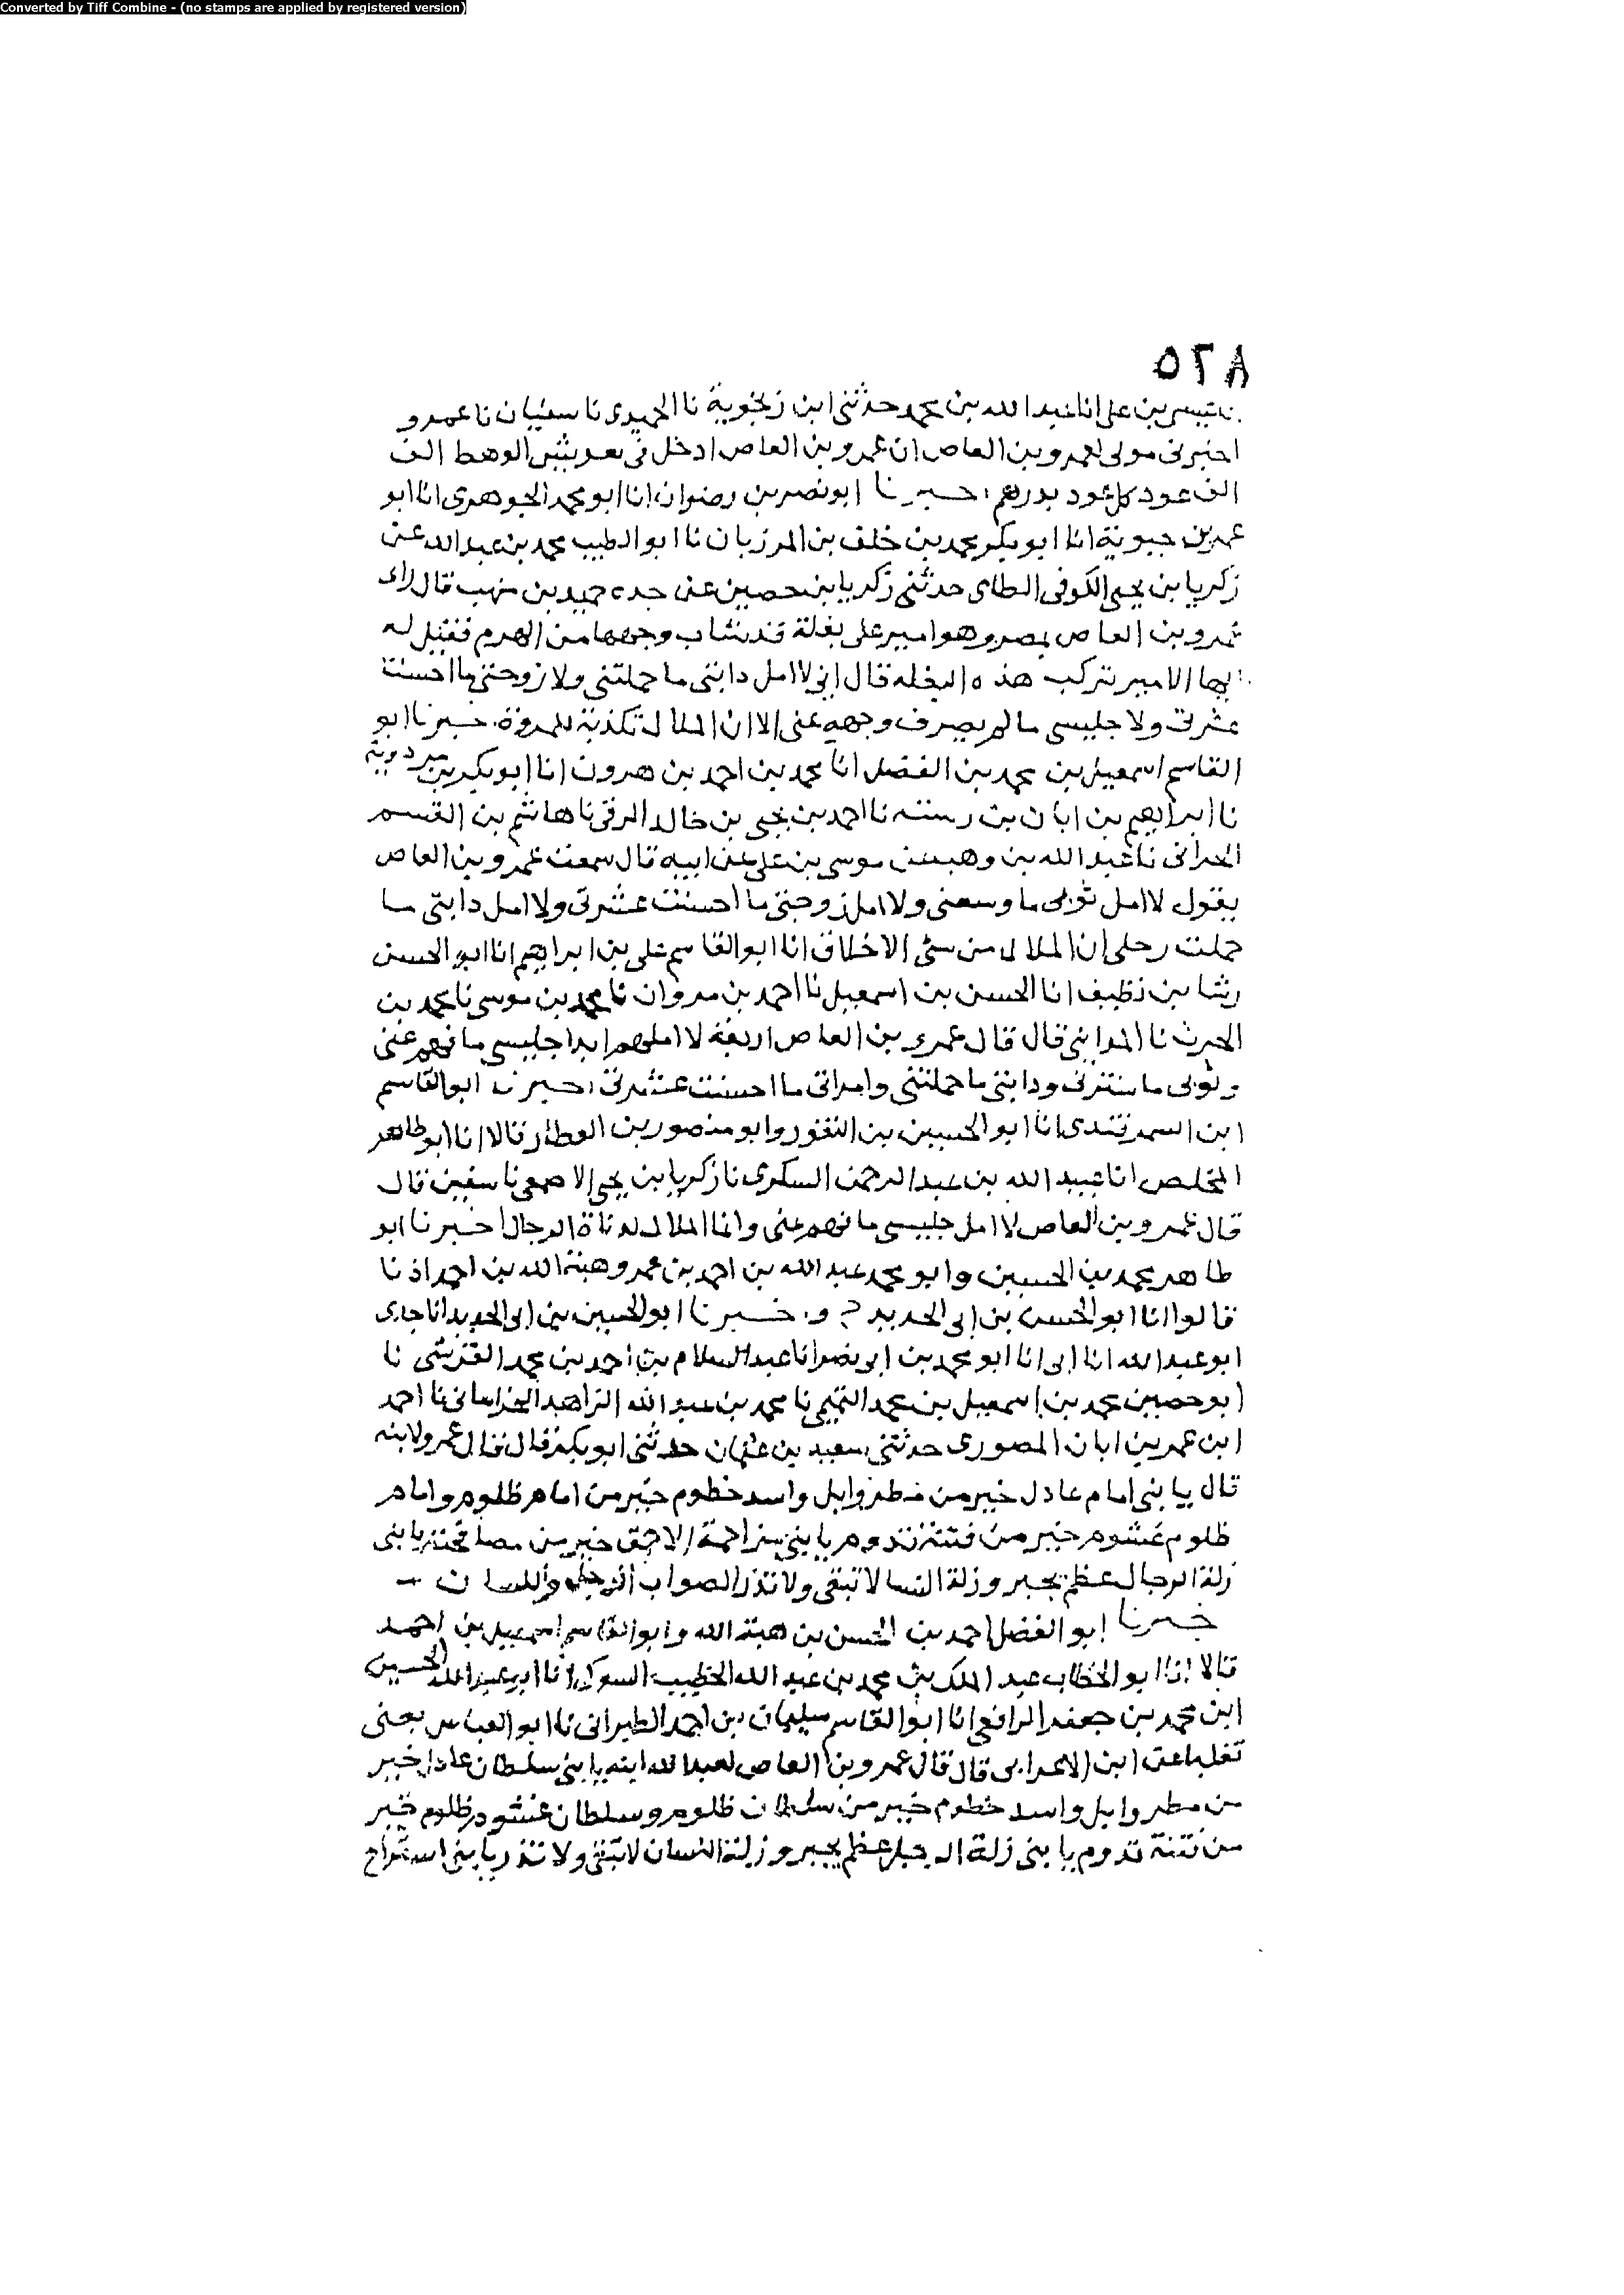 Converted by Tiff Combine - (no stamps are applied by registered version)
٥٢٨
بن علي انا عبد الله بن محمد حدثني ابن زنجوية نا الحميدي نا سفيان نا عمرو
اخبرني مولى لعمرو بن العاص ان عمرو بن العاص ادخل في تعريش الوهط الف
الف عود كل عود بدرهم اخبرنا ابو نصر بن رضوان انا ابو محمد الجوهري انا ابو
عمر بن حيوية انا ابو بكر محمد بن خلف بن المرزبان نا ابو الطيب محمد بن عبد الله عن
زكريا بن يحيى الكوفي الطاى حدثني زكريا بن حصين عن جده حميد بن منهب قال راى
عمرو بن العاص بمصر وهو امير على بغلة قد شاب وجهها من الهرم فقيل له
ايها الامير تركب هذه البغله قال اني لا امل دابتي ما حملتني ولا زوجتي ما احسنت
عشرتي ولا جليسي ما لم يصرف وجهه عني الا ان الملال تكذبة للمروة خبرنا ابو
القاسم اسمعيل بن محمد بن الفضل انا محمد بن احمد بن هرون انا ابو بكر بن مردوية
نا ابراهيم بن ابان بن رسته نا احمد بن يحيى بن خالد الرقي نا هاشم بن القسم
الحراني نا عبد الله بن وهب عن موسى بن علي عن ابيه قال سمعت عمرو بن العاص
يقول لا امل ثوبي ما وسعني ولا امل زوجتي ما احسنت عشرتي ولا امل دابتي ما
حملت رحلي ان الملال من سئ الاخلاق انا ابو القاسم علي بن ابراهيم انا ابو الحسن
رشا بن نظيف انا الحسن بن اسمعيل نا احمد بن مروان نا محمد بن موسى نا محمد بن
الحرث نا المدايني قال قال عمرو بن العاص اربعة لا املهم ابدا جليسي ما فهم عني
وثوبي ما سترني ودابتي ما حملتني وامراتي ما احسنت عشرتي اخبرنا ابو القاسم
ابن السمرقندي انا ابو الحسين بن النقور وابو منصور بن العطار قالا انا ابو طاهر
المخلص انا عبيد الله بن عبد الرحمن السكري نا زكريا بن يحيى الاصمعي نا سفين قال
قال عمرو بن العاص لا امل جليسي ما فهم عني وانما الملال لدناة الرجال اخبرنا ابو
طاهر محمد بن الحسين وابو محمد عبد الله بن احمد بن عمر وهبة الله بن احمد اذنا
قالوا انا ابو الحسن بن ابي الحديد ح و. خبرنا ابو الحسين بن ابي الحديد انا جدي
ابو عبد الله انا ابي انا ابو محمد بن ابي نصر انا عبد السلام بن احمد بن محمد القرشي نا
ابو حصين محمد بن اسمعيل بن محمد التميمي نا محمد بن عبد الله الزاهد الخراساني نا احمد
ابن عمر بن ابان الصوري حدثني سعيد بن عثمان حدثني ابو بكر قال قال عمرو لابنه
قال يا بني امام عادل خير من مطر وابل واسد خطوم خير من امام ظلوم وامام
ظلوم غشوم خير من فتنة تدوم يا بني مزاحمة الاحمق خير من مصافحته يا بني
زلة الرجال عظم يجبر وزلة اللسان لا تبقي ولا تذر
خبرنا ابو الفضل احمد بن الحسن بن هبة الله وابو القاسم اسمعيل بن احمد
قالا انا ابو الخطاب عبد الملك بن محمد بن عبد الله الخطيب انا ابو عبد الله الحسين
ابن محمد بن جعفر الرافعي انا ابو القاسم سليمان بن احمد الطبراني نا ابو العباس يعني
ثعلبا عن ابن الاعرابي قال قال عمرو بن العاص لعبد الله ابنه يا بني سلطان عادل خير
من مطر وابل واسد خطوم خير من سلطان ظلوم وسلطان غشوم ظلوم خير
من فتنة تدوم يا بني زلة الرجل عظم يجبر وزلة اللسان لا تبقي ولا تذر يا بني استراح